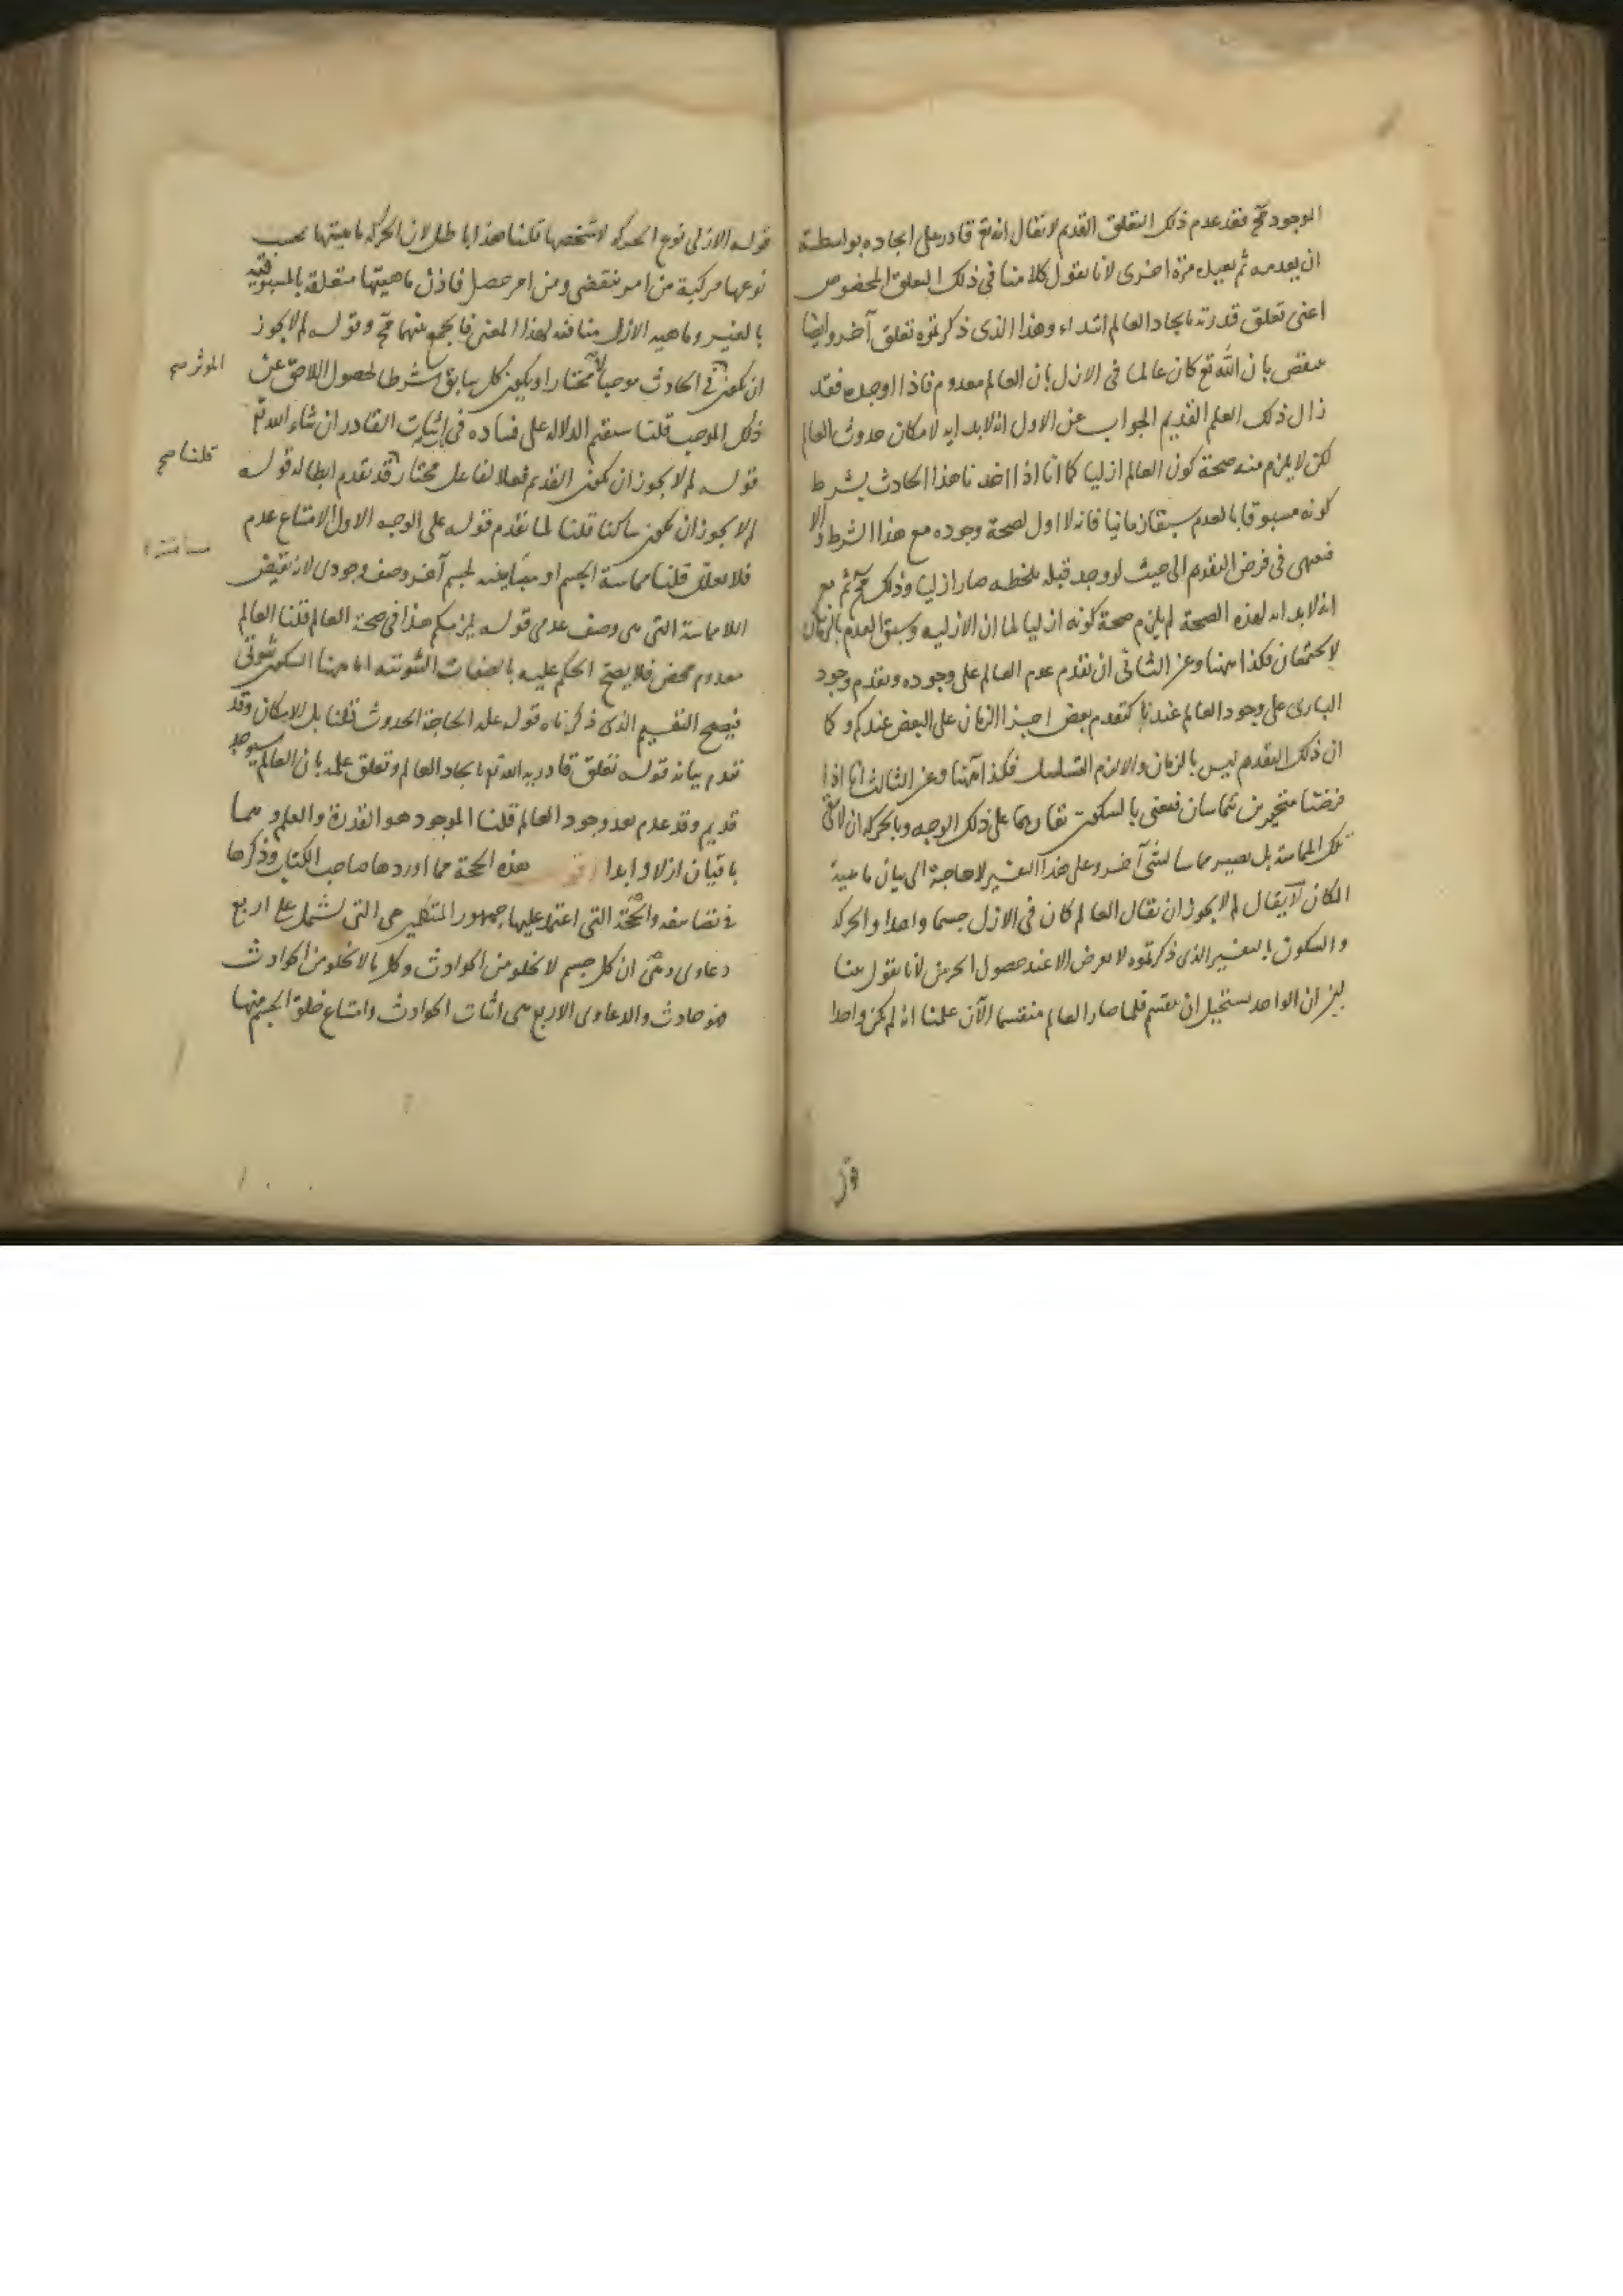 الموجود مح فقد عدم ذلك التعلق القديم لا يقال انه تع قادر على ايجاده بواسطة
ان يعدمه ثم يعيده مرة اخرى لانا نقول كلامنا فى ذلك التعلق المخصوص
اعنى تعلق قدرته بايجاد العالم ابتداء وهذا الذى ذكرتموه تعلق آخر وايضا
ينتقض بان الله تع كان عالما فى الازل بان العالم معدوم فاذا اوجده فقد
زال ذلك العلم القديم الجواب عن الاول انه لا بداية لامكان حدوث العالم
لكن لا يلزم منه صحة كون العالم ازليا كما انا اذا اخذنا هذا الحادث بشرط
كونه مسبوقا بالعدم سبقا زمانيا فانه لا اول لصحة وجوده مع هذا الشرط والا
فينتهى فى فرض التقدم الى حيث لو وجد قبله بلحظة صار ازليا وذلك مح ثم مع
انه لا بداية لهذه الصحة لم يلزم صحة كونه ازليا لما ان الازلية وسبق العدم بالزمان
لا يجتمعان فكذا ههنا وعن الثانى ان تقدم عدم العالم على وجوده وتقدم وجود
البارى على وجود العالم عندنا كتقدم بعض اجزا الزمان على البعض عندكم وكما
ان ذلك التقدم ليس بالزمان والا لزم التسلسل فكذا ههنا وعن الثالث انا اذا
فرضنا متحيزين يتماسان فنعنى بالسكون بقاءهما على ذلك الوجه وبالحركة ان لا تبقى
تلك المماسة بل يصير مماسا لشى آخر وعلى هذا التفسير لا حاجة الى بيان ماهية
المكان لا يقال لم لا يجوز ان يقال العالم كان فى الازل جسما واحدا والحركة
والسكون بالتفسير الذى ذكرتموه لا يعرض الا عند حصول الجسمين لانا نقول بينا
ان الواحد يستحيل ان ينقسم فلما صار العالم منقسما الآن علمنا انه لم يكن واحدا
قوله الازلى نوع الحركة لا شخصها قلنا هذا باطل لان الحركة ماهيتها بحسب
نوعها مركبة من امر تقضى ومن امر حصل فاذن ماهيتها متعلقة بالمسبوقية
بالغير وماهية الازل منافية لهذا المعنى فالجمع بينهما مح وقوله لم لا يجوز
ان يكون فى الحادث موجبا لا مختارا ويكون كل سابق شرطا لحصول اللاحق عن
المؤثر صح
ذلك الموجب قلنا سنقيم الدلالة على فساده فى اثبات القادر ان شاء الله تع
قوله لم لا يجوز ان يكون القديم فعلا لفاعل مختار قد تقدم ابطاله قوله
قلنا صح
لم لا يجوز ان يكون ساكنا قلنا لما تقدم قوله على الوجه الاول الامتناع عدم
فلا يعلل قلنا مماسة الجسم او مباينته لجسم آخر وصف وجودى لانه نقيض
اللامماسة التى هى وصف عدمى قوله يلزمكم هذا فى صحة العالم قلنا العالم
معدوم محض فلا يصح الحكم عليه بالصفات الثبوتية اما ههنا السكون ثبوتى
فيصح التقسيم الذى ذكرناه قوله علة الحاجة الحدوث قلنا بل الامكان وقد
تقدم بيانه قوله تعلق قادرية الله تع بايجاد العالم وتعلق علمه بان العالم سيوجد
قديم وقد عدم بعد وجود العالم قلنا الموجود هو القدرة والعلم وهما
باقيان ازلا وابدا هذه الحجة مما اوردها صاحب الكتاب وذكرها
فى تصانيفه والحجة التى اعتمد عليها جمهور المتكلمين هى التى تشتمل على اربع
دعاوى وهى ان كل جسم لا يخلو من الحوادث وكل ما لا يخلو من الحوادث
فهو حادث والدعاوى الاربع هى اثبات الحوادث وامتناع خلو الجسم منها